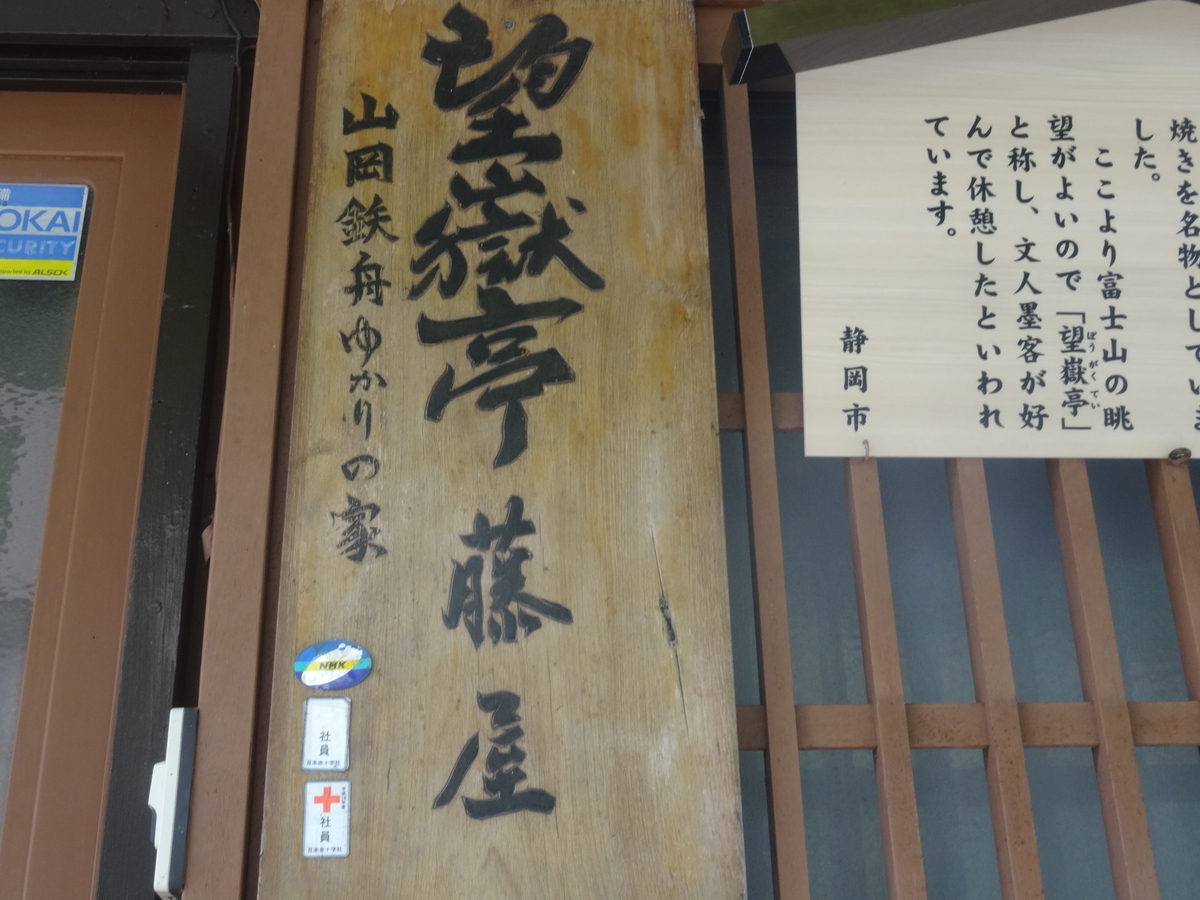 望嶽亭 藤屋
山岡鉄舟ゆかりの家
焼きを名物としていま
した。
ここより富士山の眺
望がよいので「望嶽亭」
ぼうがくてい
と称し、文人墨客が好
んで休憩したといわれ
ています。
静岡市
OKAI
CURITY
ALSOK
NHK
社員
日本赤十字社
社員
日本赤十字社